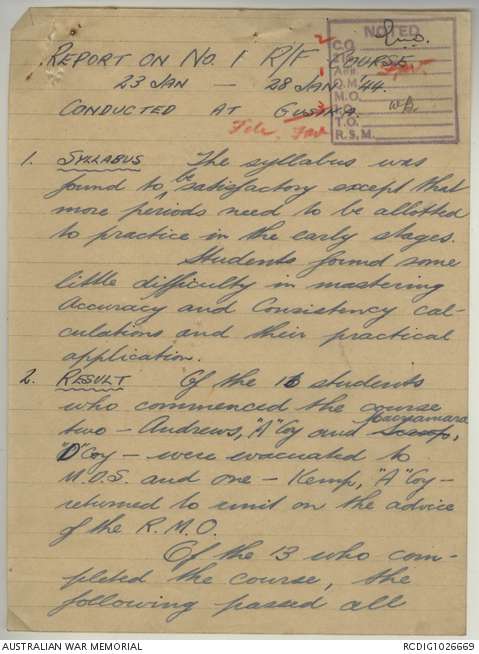 REPORT ON NO. 1 R/F COURSE
23 JAN — 28 JAN '44.
CONDUCTED AT GUSIKA
NOTED
C.O.
2 I/C
ADJ.
Q.M.
M.O.
I.O.
T.O.
R.S.M.
1. SYLLABUS The syllabus was
found to be satisfactory except that
more periods need to be allotted
to practice in the early stages.
Students found some
little difficulty in mastering
Accuracy and Consistency cal-
culations and their practical
application.
2. RESULT Of the 16 students
who commenced the course
two - Andrews, "A" Coy and
"D" Coy - were evacuated to
M.D.S. and one - Kemp, "A" Coy -
returned to unit on the advice
of the R.M.O.
Of the 13 who com-
pleted the course, the
following passed all
AUSTRALIAN WAR MEMORIAL
RCDIG1026669